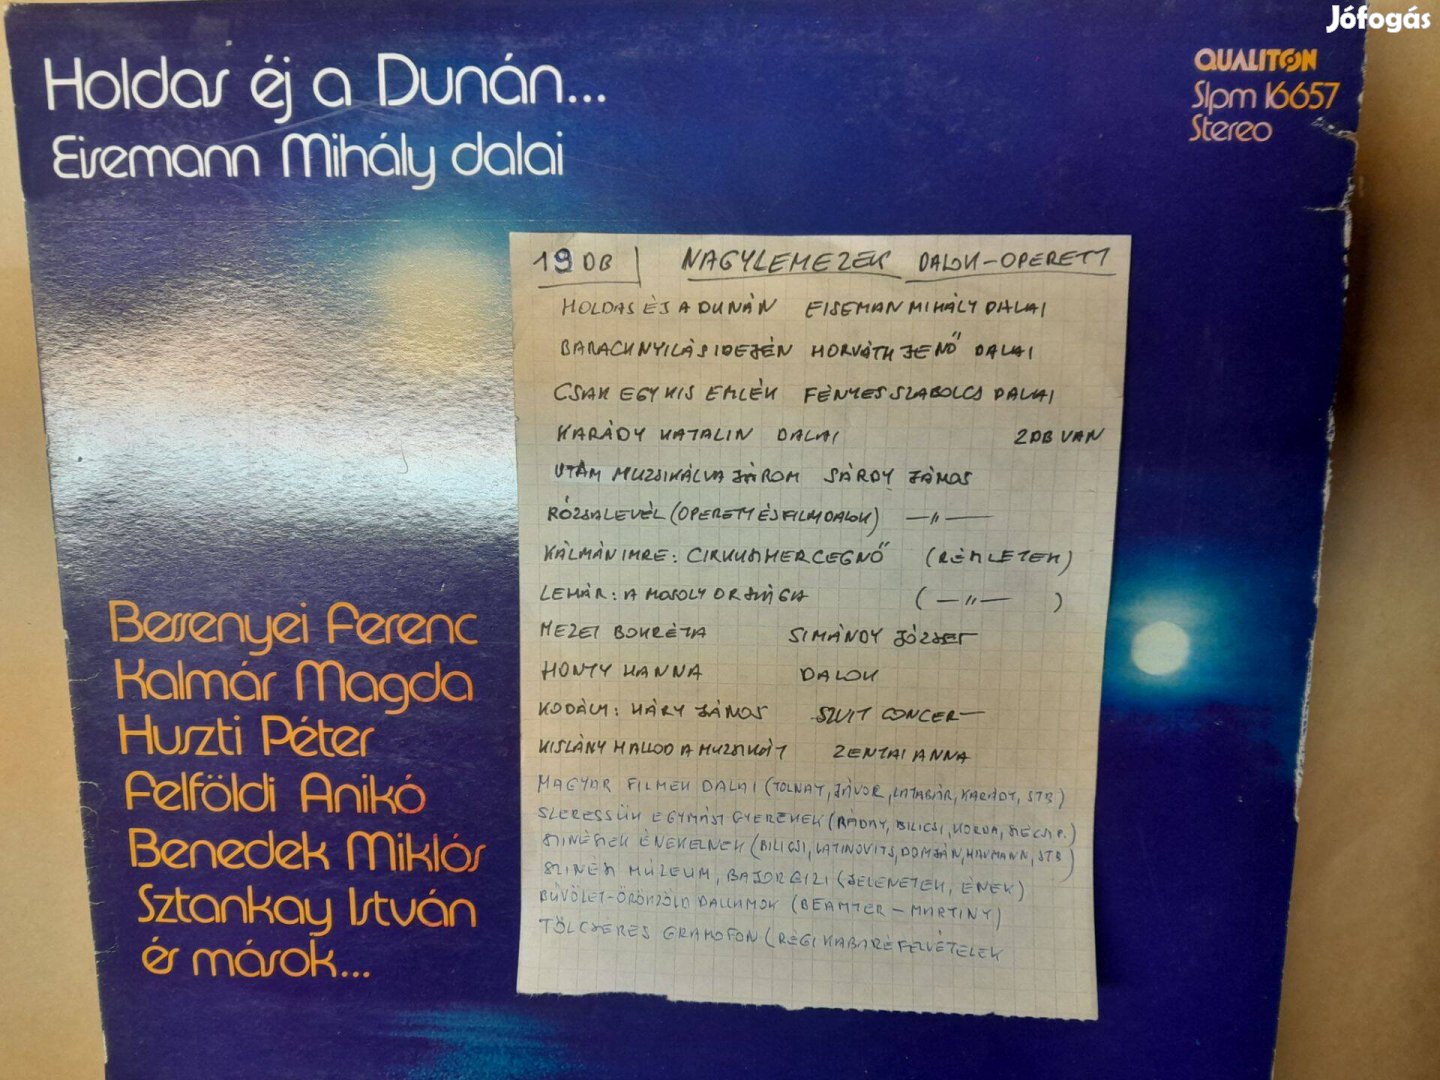 Jófogás
Holdas éj a Dunán...
Eisemann Mihály dalai
QUALITON
Slpm 16657
Stereo
Bessenyei Ferenc
Kalmár Magda
Huszti Péter
Felföldi Anikó
Benedek Miklós
Sztankay István
és mások...
19 DB NAGYLEMEZEK DALOK-OPERETT
HOLDAS ÉJ A DUNÁN EISEMAN MIHÁLY DALAI
BARACKNYILÁS IDEJÉN HORVÁTH JENŐ DALAI
CSAK EGY KIS EMLÉK FÉNYES SZABOLCS DALAI
KARÁDY KATALIN DALAI 2DB VAN
UTAM MUZSIKÁLVA JÁROM SÁRDY JÁNOS
RÓZSALEVÉL (OPERETT ÉS FILMDALOK) —"—
KÁLMÁN IMRE: CIRKUSZHERCEGNŐ (RÉSZLETEK)
LEHÁR: A MOSOLY ORSZÁGA (—"—)
MEZEI BOKRÉTA SIMÁNDY JÓZSEF
HONTY HANNA DALOK
KODÁLY: HÁRY JÁNOS SZVIT CONCER—
KISLÁNY HALLOD A MUZSIKÁT ZENTAI ANNA
MAGYAR FILMEK DALAI (TOLNAY, JÁVOR, LATABÁR, KARÁDY, STB)
SZERESSÜK EGYMÁST GYEREKEK (RÁDAY, BILICSI, KORDA, SZÉCSI P.)
SZINÉSZEK ÉNEKELNEK (BILICSI, LATINOVITS, DOMJÁN, HAUMANN, STB)
SZINÉSZ MÚZEUM, BAJOR GIZI (JELENETEK, ÉNEK)
BŰVÖLET-ÖRÖKZÖLD DALLAMOK (BEAMTER - MARTINY)
TÖLCSÉRES GRAMOFON (RÉGI KABARÉFELVÉTELEK